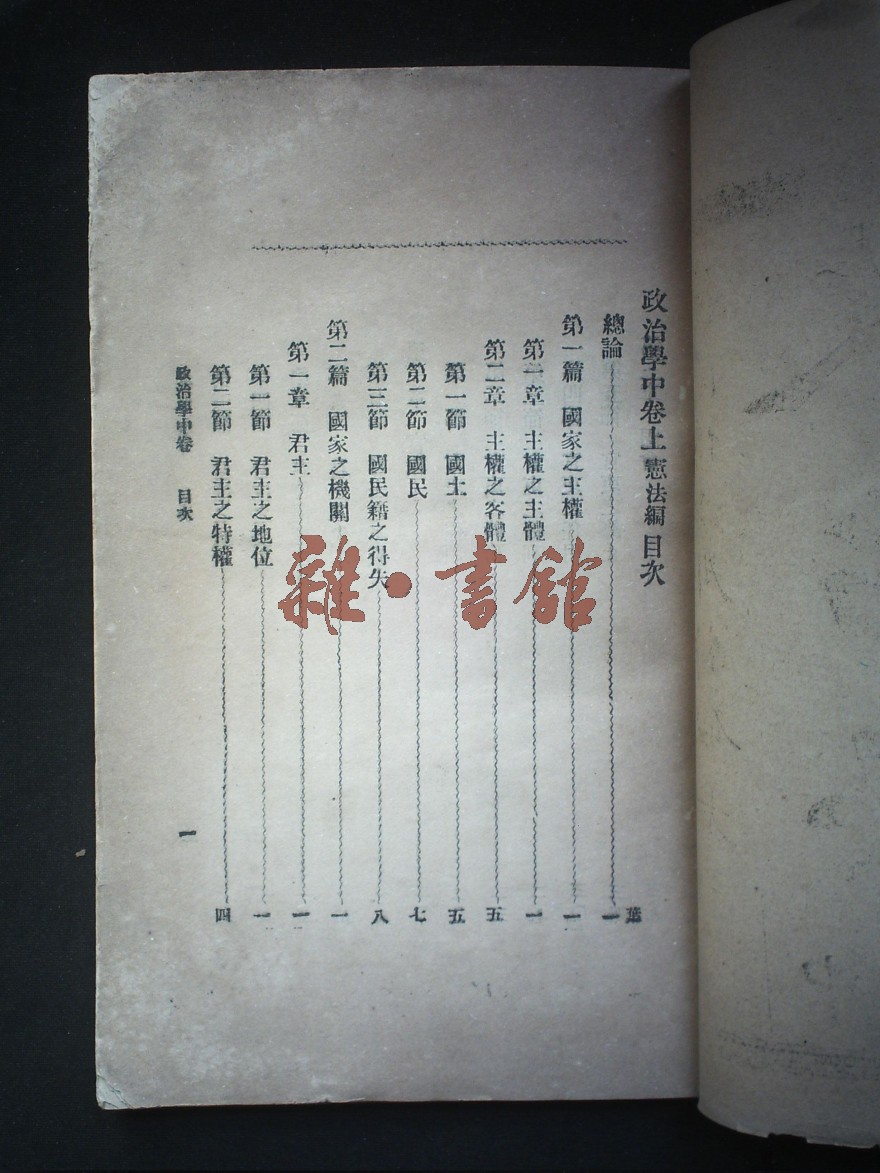 政治學中卷上 憲法編 目次
葉
總論 一
第一篇 國家之主權 一
第一章 主權之主體 一
第二章 主權之客體 五
第一節 國土 五
第二節 國民 七
第三節 國民籍之得失 八
第二篇 國家之機關 一
第一章 君主 一
第一節 君主之地位 一
第二節 君主之特權 四
政治學中卷 目次 一
雜·書館